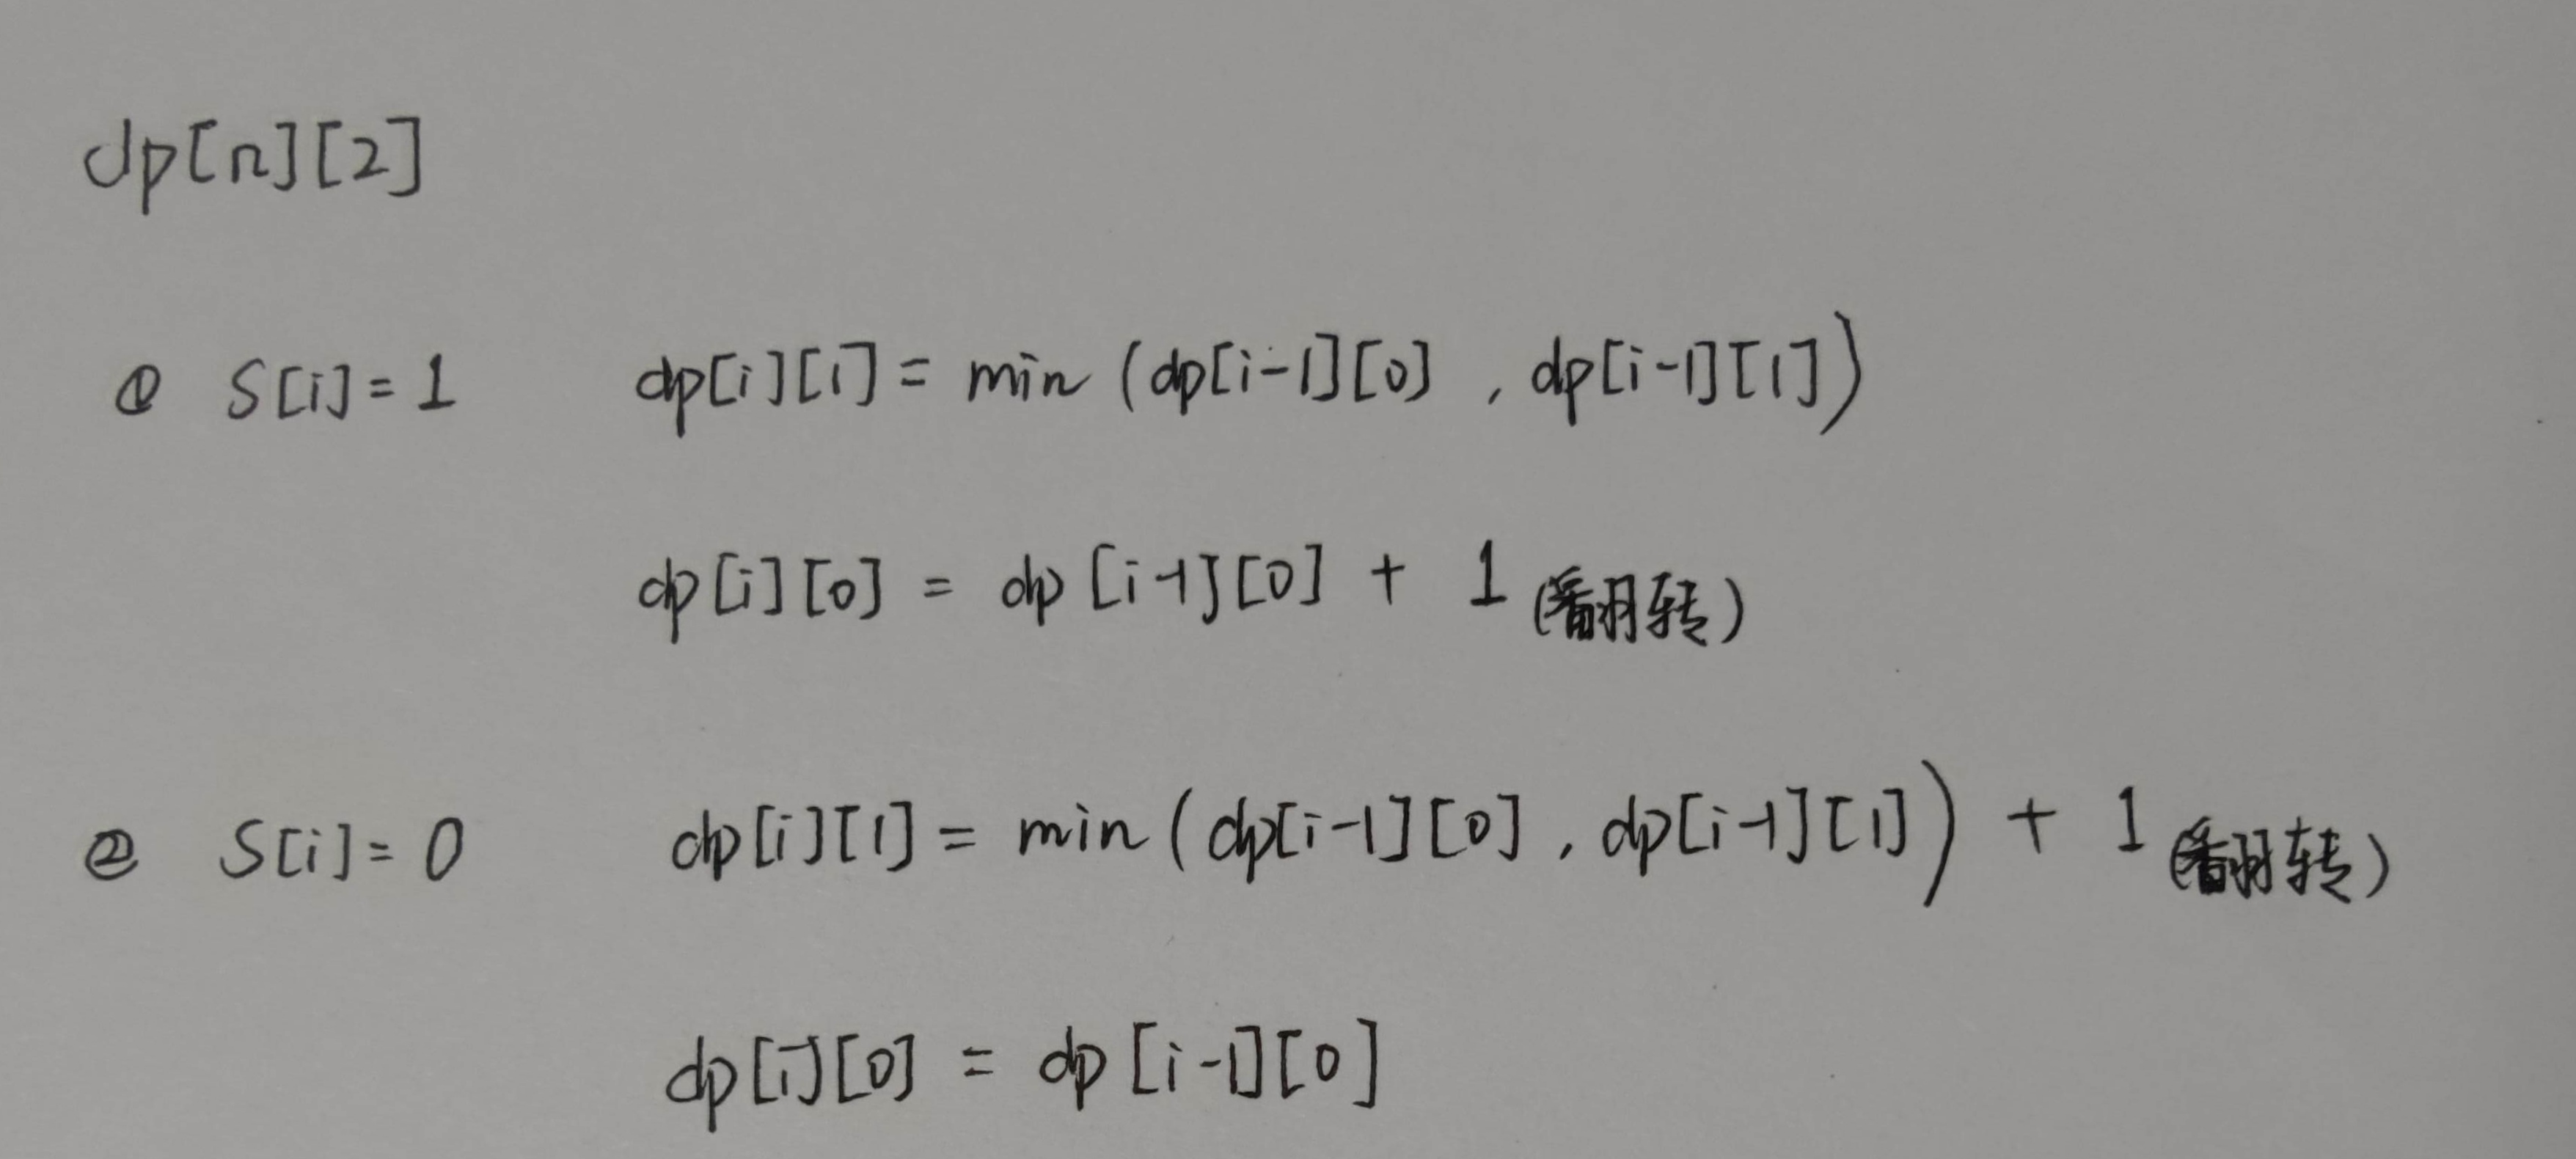 dp[n][2]
① S[i]=1 dp[i][1]= min (dp[i-1][0] , dp[i-1][1])
dp[i][0] = dp [i-1][0] + 1 (翻转)
② S[i]=0 dp[i][1]= min (dp[i-1][0] , dp[i-1][1]) + 1 (翻转)
dp[i][0] = dp [i-1][0]